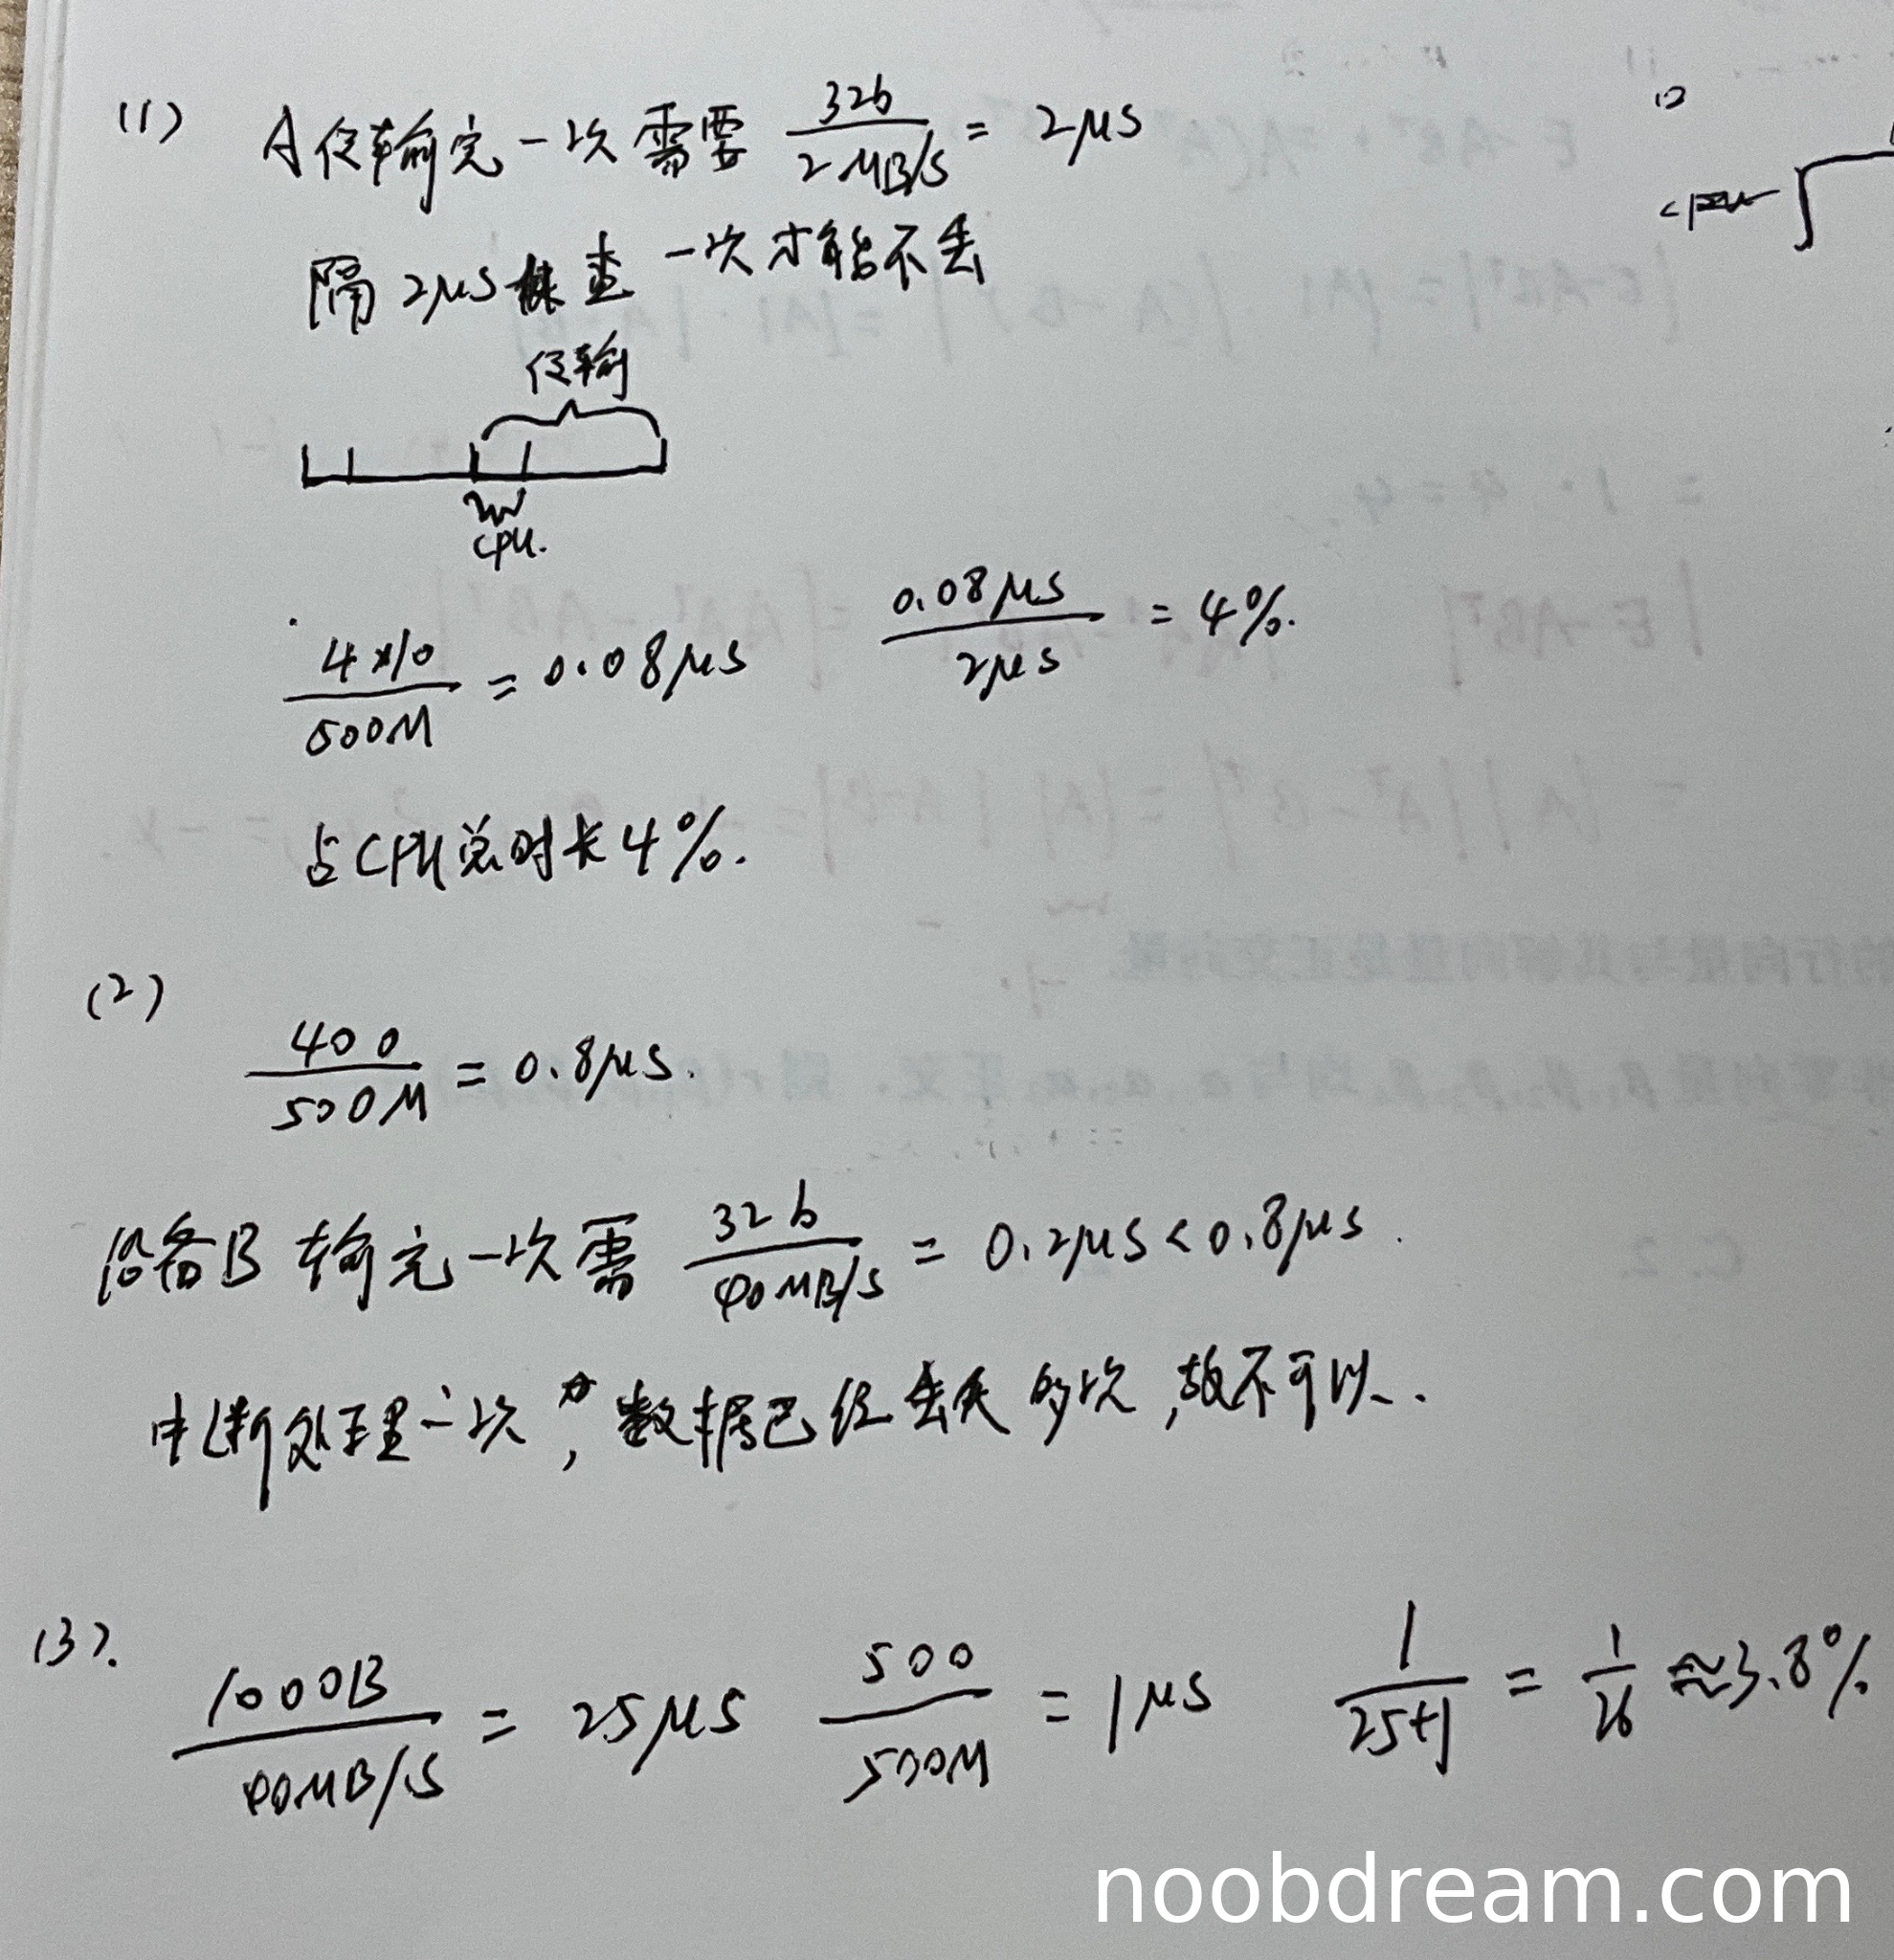 (1) A传输完一次需要 32b / 2MB/s = 2μs
隔2μs 查一次才能不丢
传输
CPU.
4×10 / 500M = 0.08μs  0.08μs / 2μs = 4%.
占CPU总时长4%.
(2)
400 / 500M = 0.8μs.
设备B 输完一次需 32b / 40MB/s = 0.2μs < 0.8μs.
中断处理一次, 数据已经丢失多次,故不可以.
(3). 1000B / 40MB/s = 25μs  500 / 500M = 1μs  1 / 25+1 = 1/26 ≈3.8%
noobdream.com